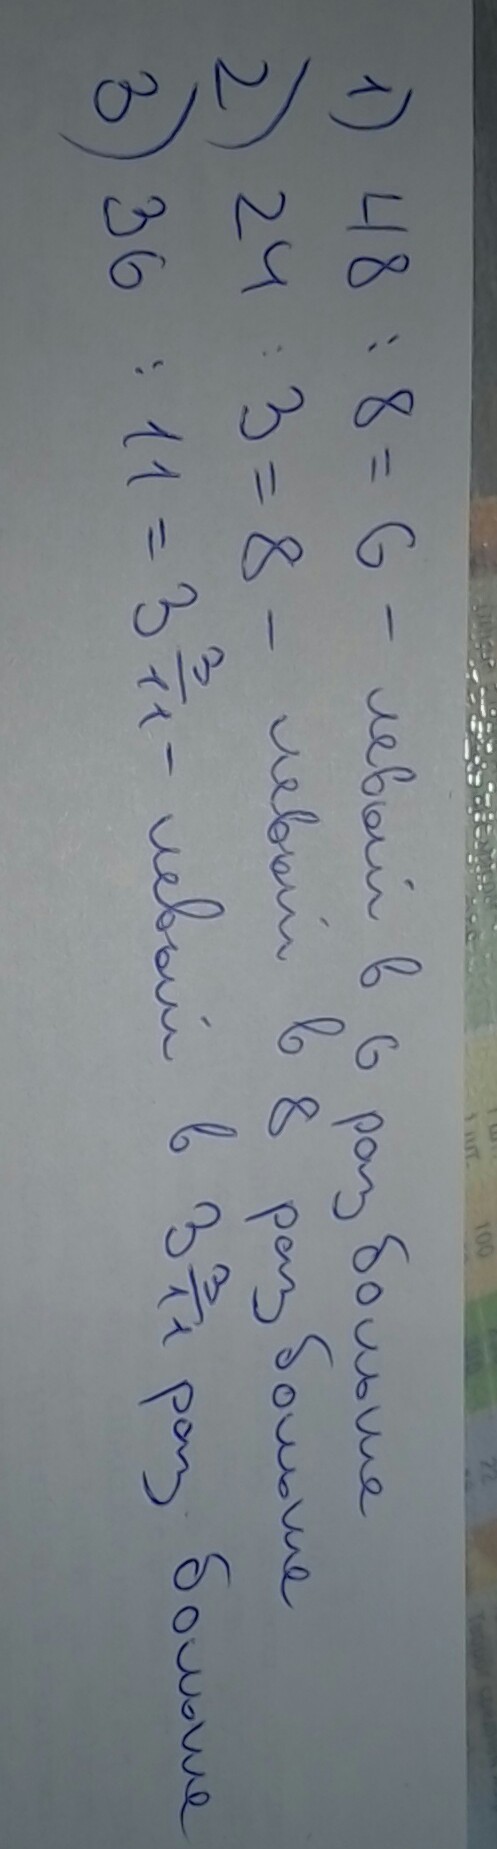 1) 48 : 8 = 6 - левый в 6 раз больше
2) 24 : 3 = 8 - левый в 8 раз больше
3) 36 : 11 = 3 3/11 - левый в 3 3/11 раз больше